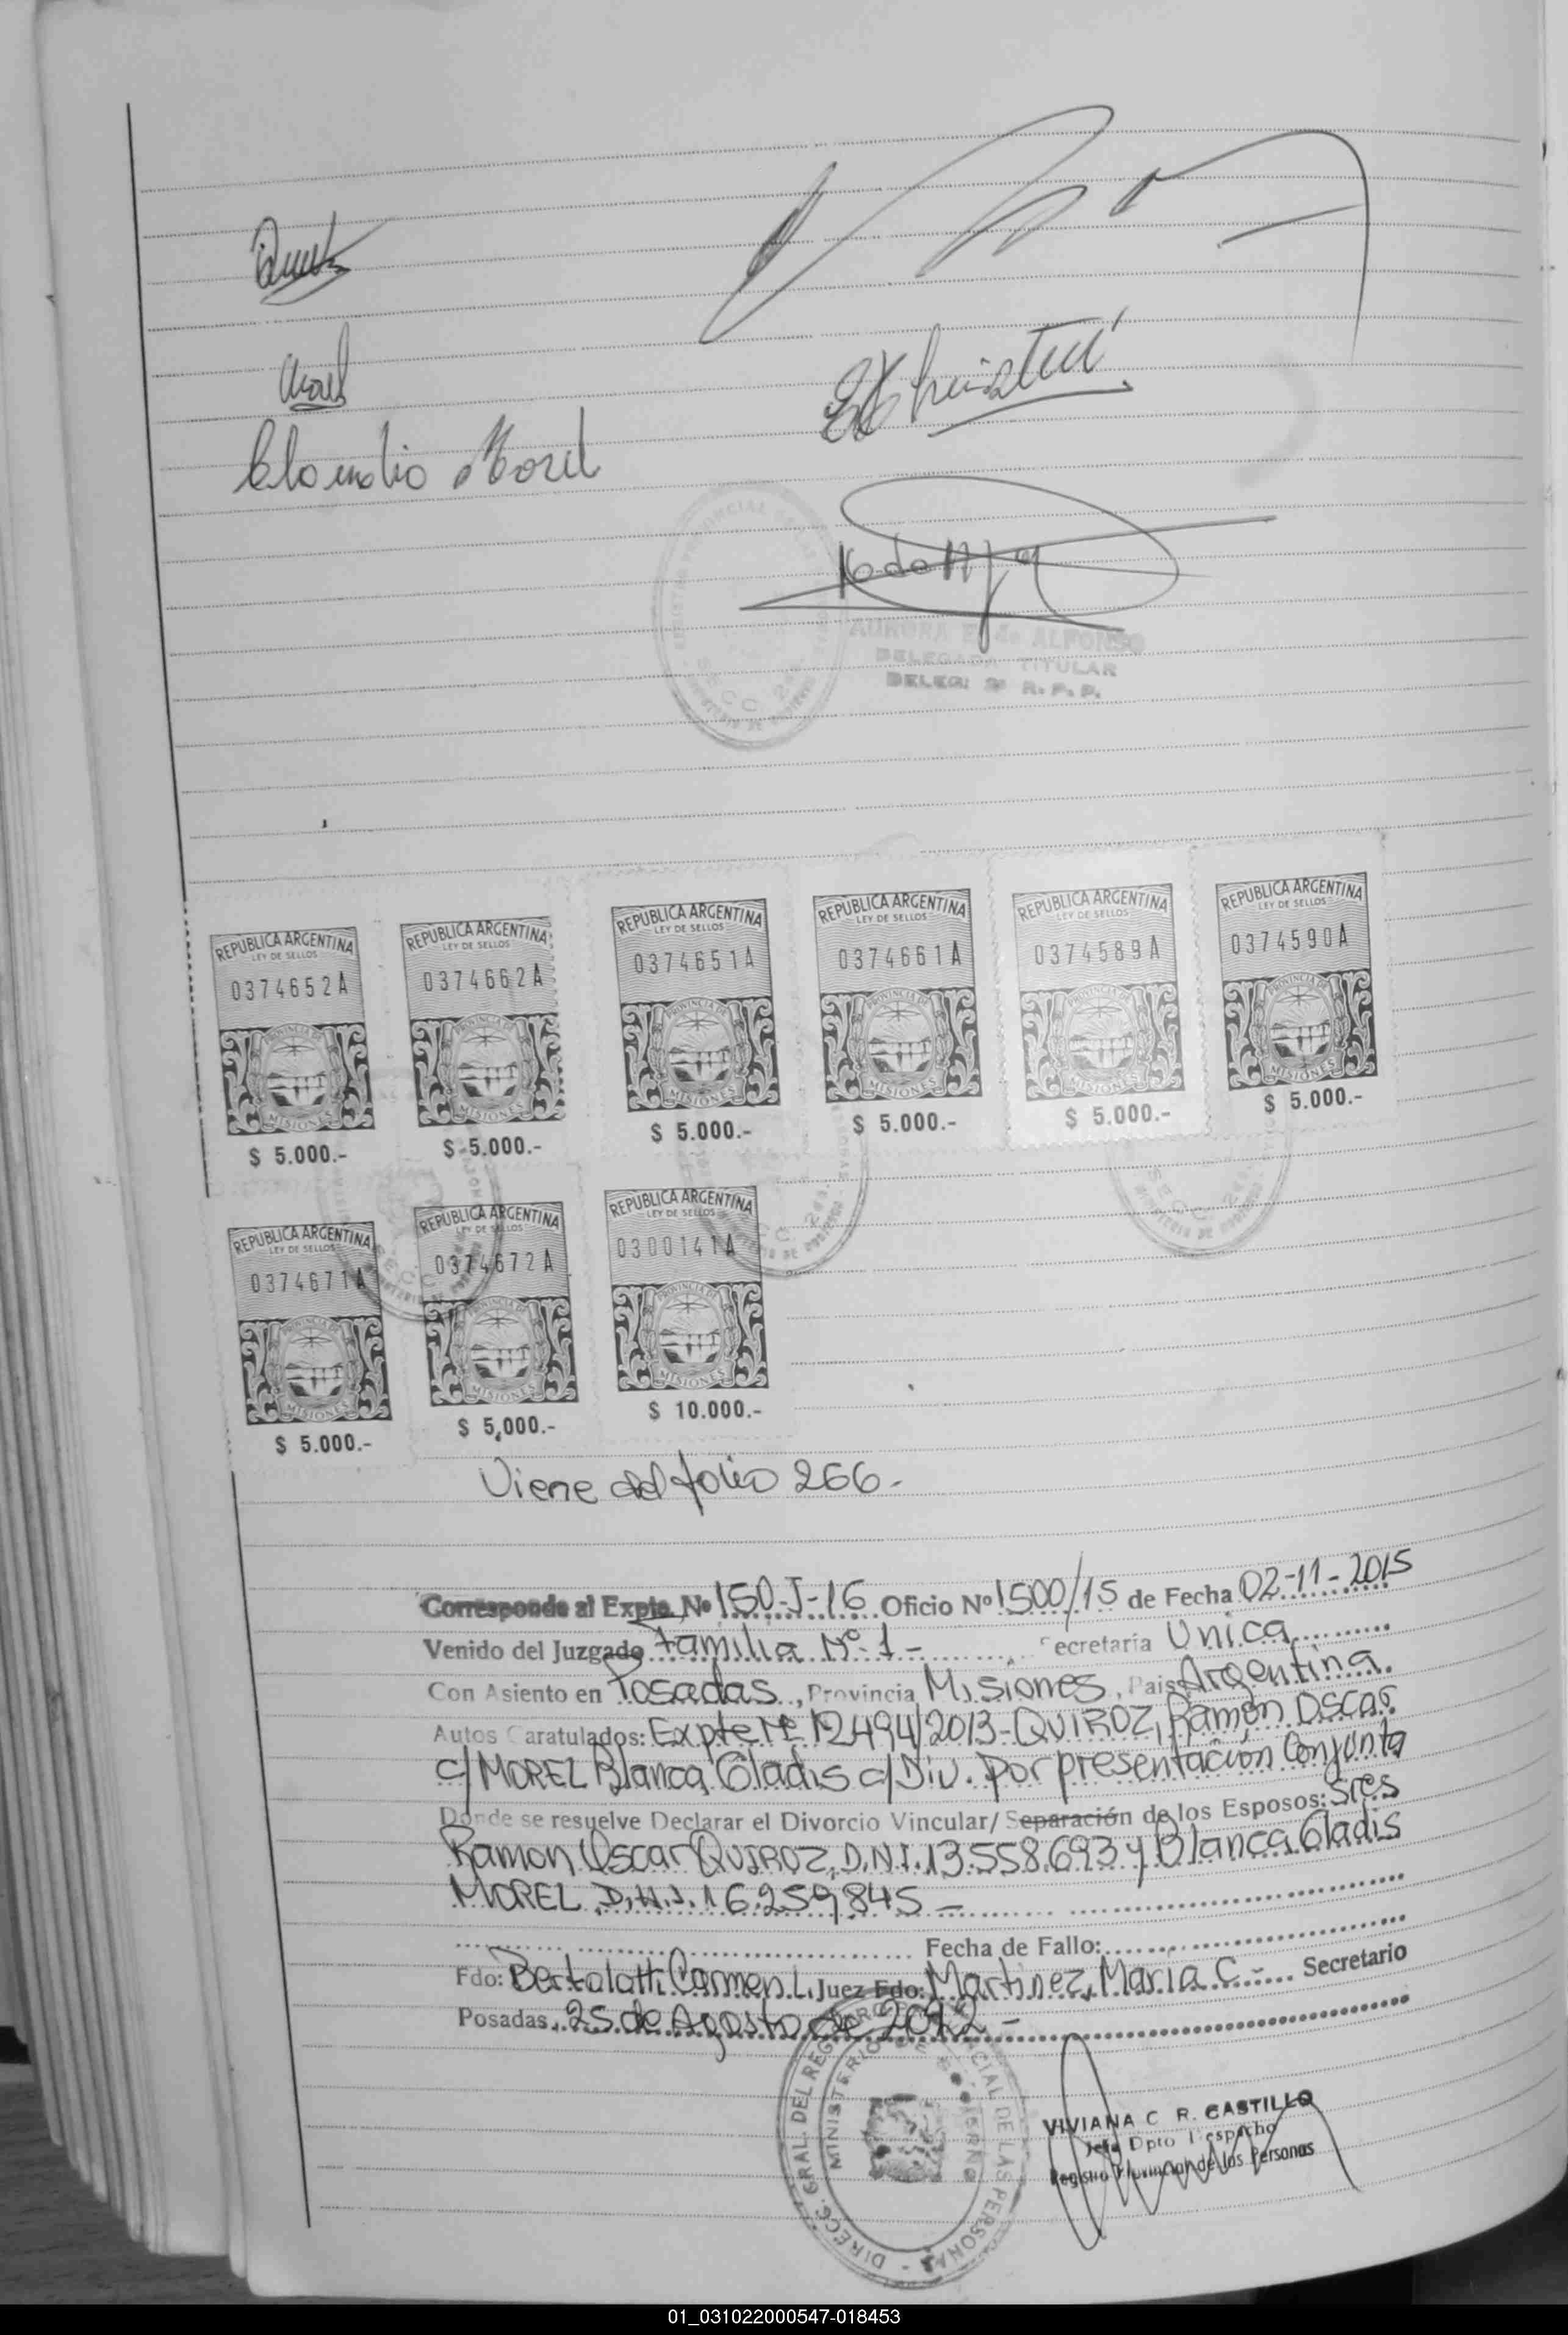 Claudio Morel
AURORA E. de ALFONSO
DELEGADA TITULAR
DELEG: 2ª R. P. P.
REPUBLICA ARGENTINA
LEY DE SELLOS
0374652A
PROVINCIA DE
MISIONES
$ 5.000.-
REPUBLICA ARGENTINA
LEY DE SELLOS
0374662A
PROVINCIA DE
MISIONES
$ 5.000.-
REPUBLICA ARGENTINA
LEY DE SELLOS
0374651A
PROVINCIA DE
MISIONES
$ 5.000.-
REPUBLICA ARGENTINA
LEY DE SELLOS
0374661A
PROVINCIA DE
MISIONES
$ 5.000.-
REPUBLICA ARGENTINA
LEY DE SELLOS
0374589A
PROVINCIA DE
MISIONES
$ 5.000.-
REPUBLICA ARGENTINA
LEY DE SELLOS
0374590A
PROVINCIA DE
MISIONES
$ 5.000.-
REPUBLICA ARGENTINA
LEY DE SELLOS
0374671A
PROVINCIA DE
MISIONES
$ 5.000.-
REPUBLICA ARGENTINA
LEY DE SELLOS
0374672A
PROVINCIA DE
MISIONES
$ 5,000.-
REPUBLICA ARGENTINA
LEY DE SELLOS
0300141A
PROVINCIA DE
MISIONES
$ 10.000.-
Viene del folio 266.-
Corresponde al Expte. Nº 150-J-16 Oficio Nº 1500/15 de Fecha 02-11-2015
Venido del Juzgado Familia Nº 1 - Secretaría Unica
Con Asiento en Posadas, Provincia Misiones, Pais Argentina.
Autos Caratulados: Expte Nº 12494/2013-QUIROZ, Ramón Oscar
c/ MOREL Blanca Gladis c/ Div. Por presentación Conjunta
Donde se resuelve Declarar el Divorcio Vincular/ Separación de los Esposos: Sres
Ramon Oscar QUIROZ, D.N.I. 13.558.693 y Blanca Gladis
MOREL D.N.I. 16.259.845 -
Fecha de Fallo:
Fdo: Bertolotti Carmen L. Juez Fdo: Martinez, Maria C - Secretario
Posadas, 25 de Agosto de 2022 -
DIRECC. GRAL. DEL REG. PROVINCIAL DE LAS PERSONAS
MINISTERIO DE GOBIERNO
VIVIANA C. R. CASTILLO
Jefa Dpto Despacho
Registro Provincial de las Personas
01_031022000547-018453